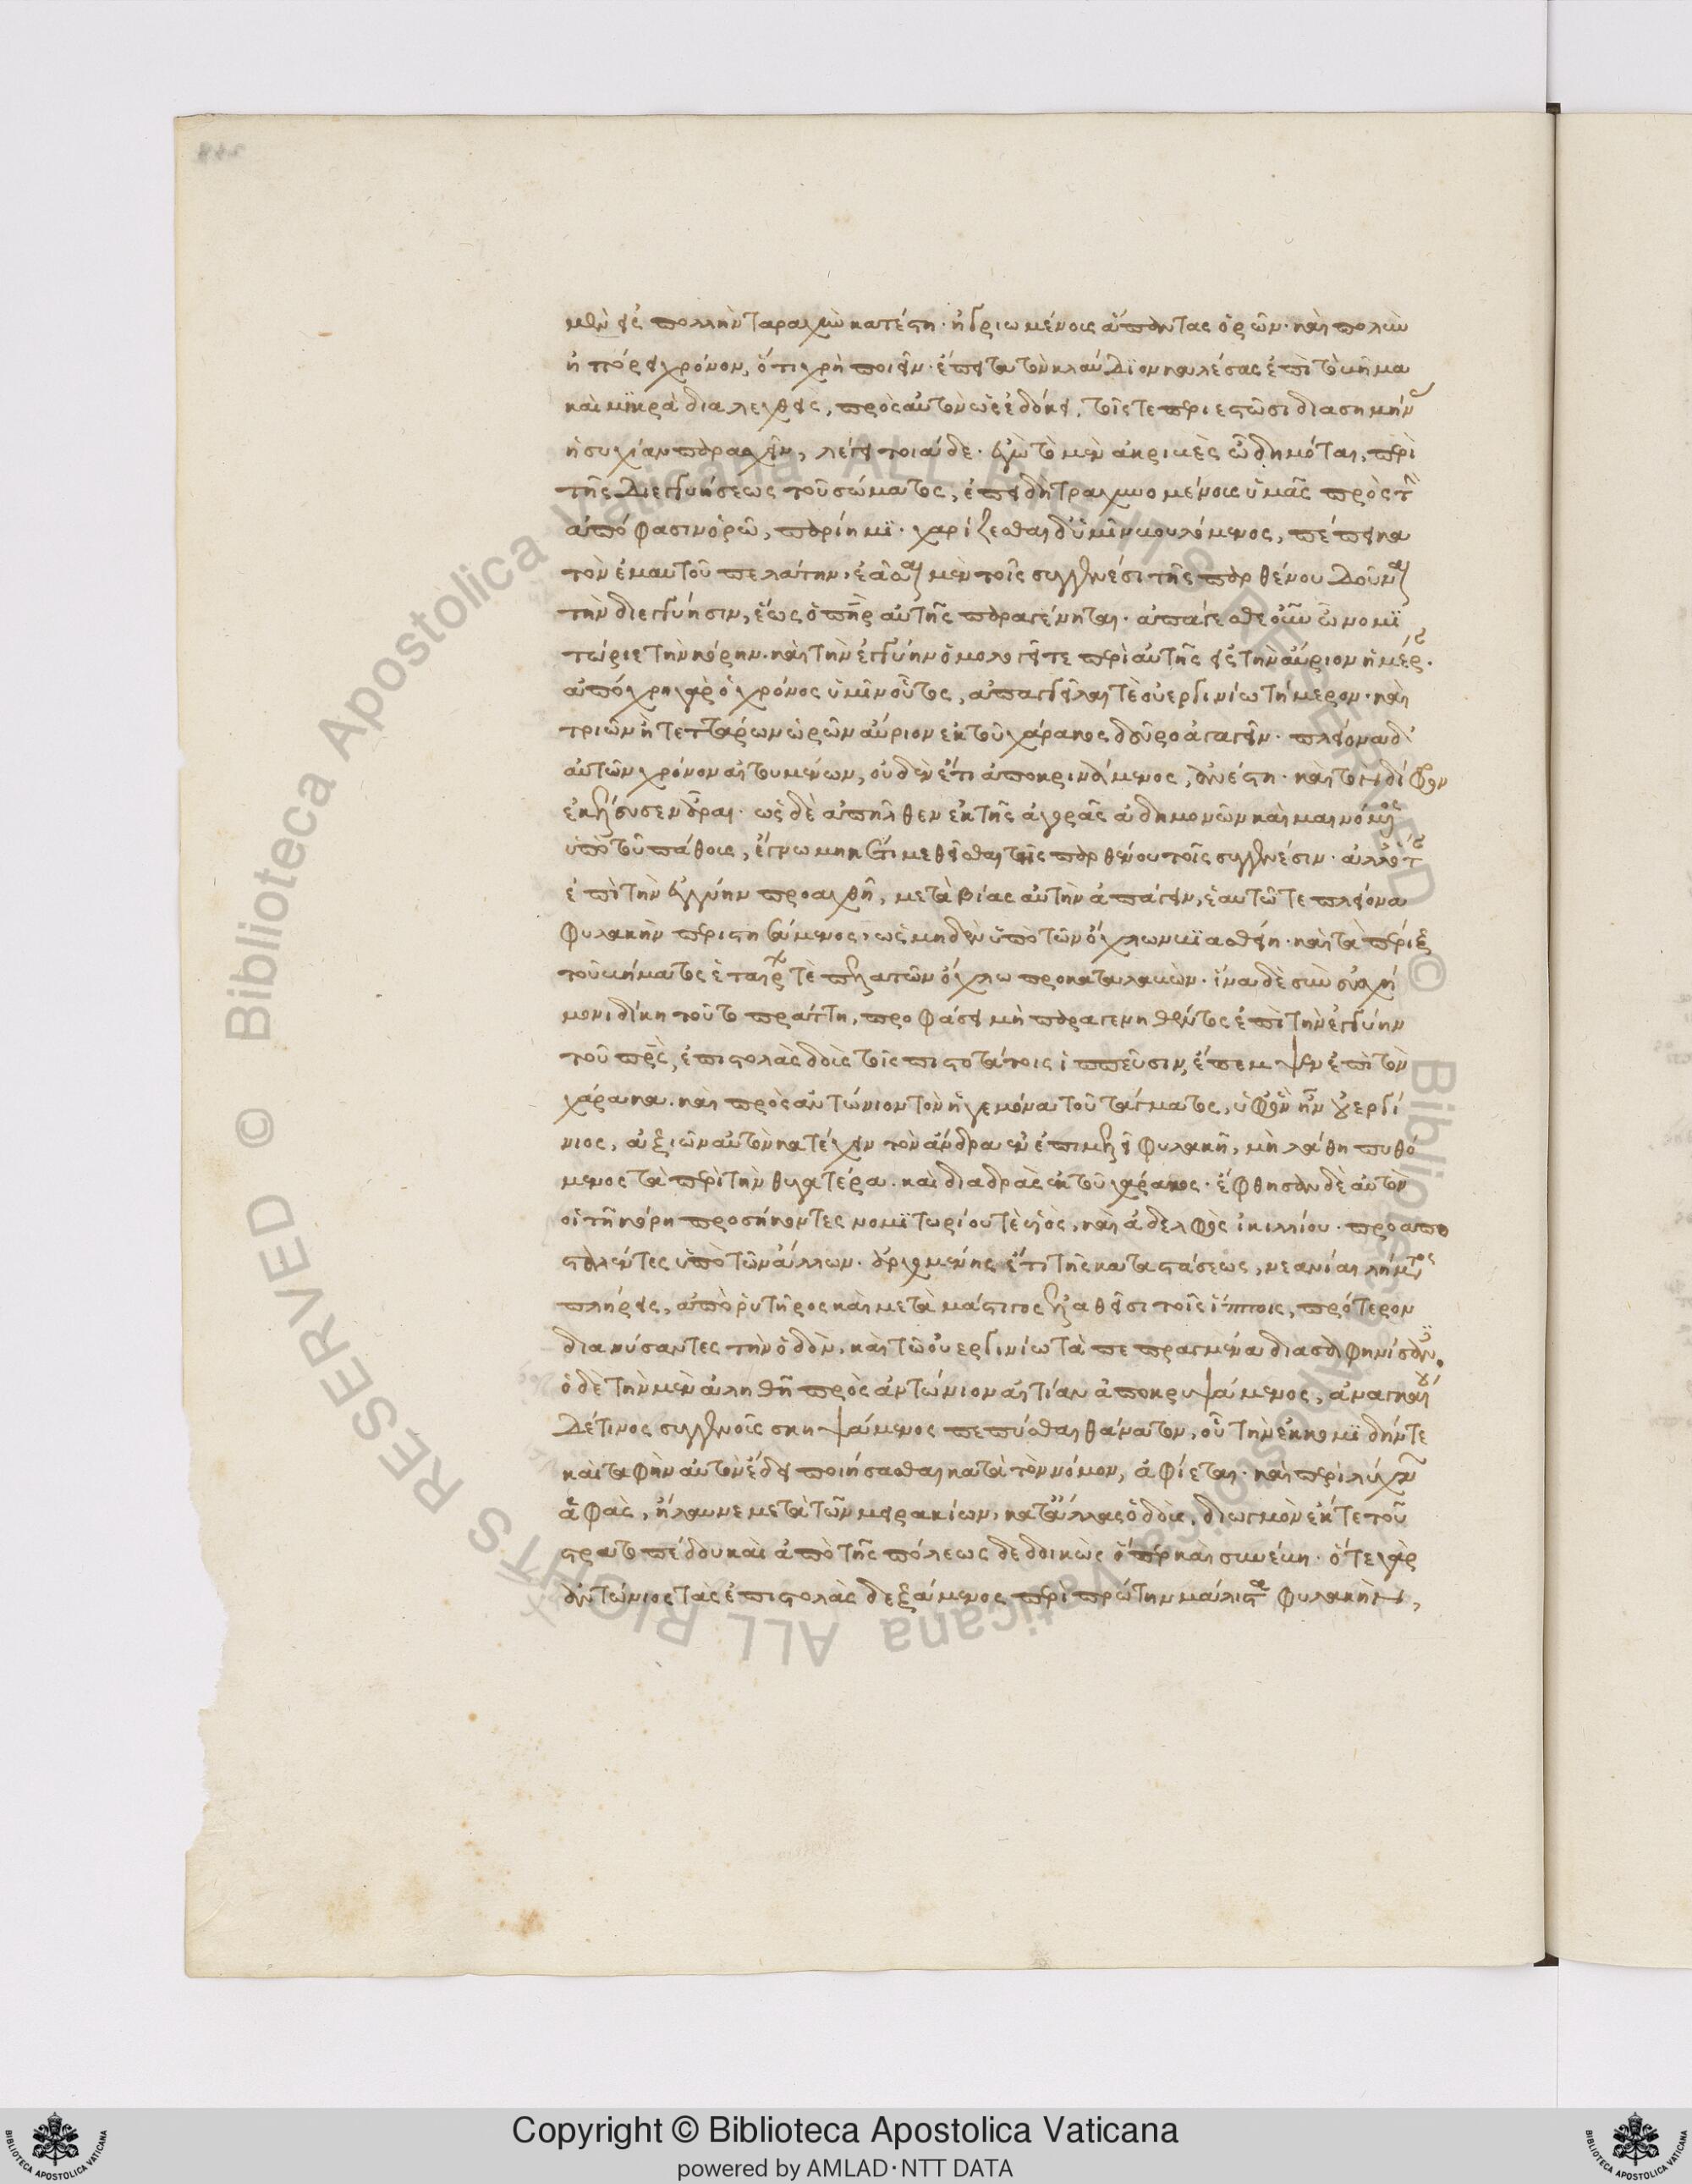 μὲν εἰς πολλὴν ταραχὴν κατέστη· ἠγριωμένους ἅπαντας ὁρῶν· καὶ πολὺν
ἠπόρει χρόνον, ὅ τι χρὴ ποιεῖν· ἔπειτα τὸν κλαύδιον καλέσας ἐπὶ τὸ βῆμα
καὶ μικρὰ διαλεχθεὶς, πρὸς αὐτὸν ὡς ἐδόκει, τοῖς τε περιεστῶσι διασημήνας
ἡσυχίαν παρασχεῖν, λέγει τοιάδε· ἐγὼ τὸ μὲν ἀκριβὲς ὦ δημόται, περὶ
τῆς διεγγυήσεως τοῦ σώματος, ἐπειδὴ τραχυνομένους ὑμᾶς πρὸς τὴν
ἀπόφασιν ὁρῶ, παρίημι· χαρίζεσθαι δ' ὑμῖν βουλόμενος, πέπεικα
τὸν ἐμαυτοῦ πελάτην, ἐᾶσαι μὲν τοῖς συγγενέσι τῆς παρθένου δοῦναι
τὴν διεγγύησιν, ἕως ὁ πατὴρ αὐτῆς παραγένηται· ἀπάγεσθε οὖν ὦ νομι
τώριε τὴν κόρην· καὶ τὴν ἐγγύην ὁμολογεῖτε περὶ αὐτῆς εἰς τὴν αὔριον ἡμέραν·
ἀπόχρη γὰρ ὁ χρόνος ὑμῖν οὗτος, ἀπαγγεῖλαί τε οὐεργινίω τήμερον· καὶ
τριῶν ἢ τεττάρων ὡρῶν αὔριον ἐκ τοῦ χάρακος δεῦρο ἀγαγεῖν· πλείονα δ'
αὐτῶν χρόνον αἰτουμένων, οὐδὲν ἔτι ἀποκρινάμενος, ἀνέστη· καὶ τὸν δίφρον
ἐκέλευσεν ἆραι· ὡς δὲ ἀπῆλθεν ἐκ τῆς ἀγορᾶς ἀδημονῶν καὶ μαινόμενος
ὑπὸ τοῦ πάθους, ἔγνω μηκέτι μεθεῖσθαι τῆς παρθένου τοῖς συγγενέσιν· ἀλλ' ὅταν
ἐπὶ τὴν ἐγγύην προαχθῇ, μετὰ βίας αὐτὴν ἀπάγειν, ἑαυτῷ τε πλείονα
φυλακὴν περιστησάμενος, ὡς μηδὲν ὑπὸ τῶν ὄχλων βιασθείη· καὶ τὰ πέριξ
τοῦ βήματος ἑταίρων τε πελατῶν ὄχλω προκαταλαβών· ἵνα δὲ σὺν εὐσχή
μονι δίκη τοῦτο πράττη, προφάσει μὴ παραγενηθέντος ἐπὶ τὴν ἐγγύην
τοῦ πατρὸς, ἐπιστολὰς δοὺς τοῖς πιστοτάτοις ἱππεῦσιν, ἔπεμψεν ἐπὶ τὸν
χάρακα· καὶ πρὸς ἀντώνιον τὸν ἡγεμόνα τοῦ τάγματος, ὑφ' ὧ ἦν οὐεργί
νιος, ἀξιῶν αὐτὸν κατέχειν τὸν ἄνδρα ἐν ἐπιμελεῖ φυλακῆ, μὴ λάθη πυθό
μενος τὰ περὶ τὴν θυγατέρα· καὶ διαδρὰς ἐκ τοῦ χάρακος· ἔφθησαν δὲ αὐτὸν
οἱ τῆ κόρη προσήκοντες νομιτωρίου τὲ υἱὸς, καὶ ἀδελφὸς ἰκιλλίου· προαπο
σταλέντες ὑπὸ τῶν ἄλλων· ἀρχομένης ἔτι τῆς καταστάσεως, νεανίαι λήματος
πλήρεις, ἀπὸ ῥυτῆρος καὶ μετὰ μάστιγος ἐλαθεῖσι τοῖς ἵπποις, πρότερον
διανύσαντες τὴν ὁδὸν, καὶ τῶ οὐεργινίω τὰ πεπραγμένα διασαφηνίσαντες.
ὁ δὲ τὴν μὲν ἀληθῆ πρὸς ἀντώνιον αἰτίαν ἀποκρυψάμενος, ἀναγκαίου
δέ τινος συγγενοῦς σκηψάμενος πεπύσθαι θάνατον, οὗ τὴν ἐκκομιδήν τε
καὶ ταφὴν αὐτὸν ἔδει ποιήσασθαι κατὰ τὸν νόμον, ἀφίεται· καὶ περὶ λύχνων
ἁφὰς, ἤλαυνε μετὰ τῶν μειρακίων, κατ' ἄλλας ὁδοὺς, διωγμὸν ἐκ τε τοῦ
στρατοπέδου καὶ ἀπὸ τῆς πόλεως δεδοικὼς ὅπερ καὶ συνέβη· ὅ τε γὰρ
ἀντώνιος τὰς ἐπιστολὰς δεξάμενος περὶ πρώτην μάλιστα φυλακὴν,
Copyright © Biblioteca Apostolica Vaticana
powered by AMLAD·NTT DATA